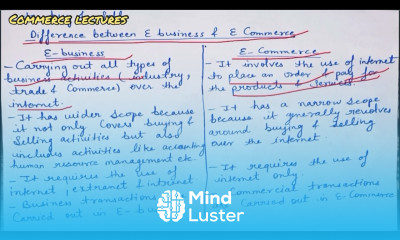 Commerce lectures
Difference between E business & E Commerce
E-business
- Carrying out all types of
business activities (industry,
trade & Commerce) over the
internet.
- It has wider scope because
it not only Covers buying &
Selling activities but also
includes activities like accounting
human resource management etc.
- It requires the use of
internet, extranet & intranet
- Business transactions
Carried out in E-
E-Commerce
- It involves the use of internet
to place an order & pay for
the products & Services.
- It has a narrow scope
because it generally revolves
around buying & Selling
over the internet
- It requires the use of
internet only
Commercial transactions
are Carried out in E-Commerce
Mind
Luster